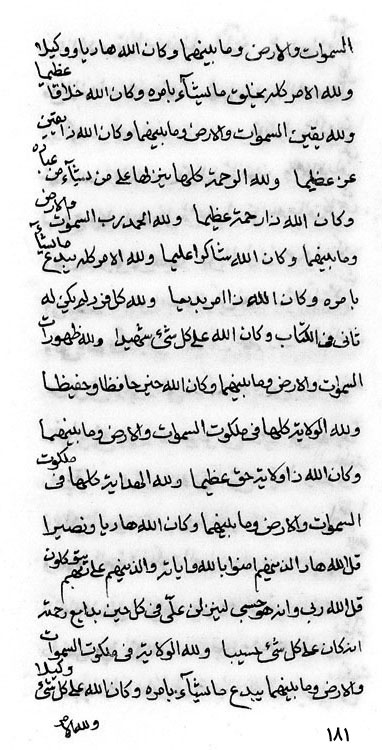 السموات والارض وما بينهما وكان الله هاديا ووكيلا
ولله الامر كله يخلق ما يشآء بامره وكان الله خلاقا عظيما
ولله يقين السموات والارض وما بينهما وكان الله ذا يقين
عن عظيما ولله الرحمة كلها ينزلها على من يشآء من عباده
وكان الله ذا رحمة عظيما ولله الحمد رب السموات والارض
وما بينهما وكان الله شاكرا عليما ولله الامر كله يبدع ما يشآء
بامره وكان الله ذا امر بديعا ولله كل فرد لم يكن له
ثانى فى الكتاب وكان الله على كل شئ شهيدا ولله ظهورات
السموات والارض وما بينهما وكان الله حافظا وحفيظا
ولله الولاية كلها فى ملكوت السموات والارض وما بينهما
وكان الله ذا ولاية حق عظيما ولله الهداية كلها فى ملكوت
السموات والارض وما بينهما وكان الله هاديا ونصيرا
قل الله هاد الذينهم امنوا بالله واياته والذينهم على ربهم يتوكلون
قل الله ربى وانه هو حسبى لينزلن علىّ فى كل حين بدايع رحمته
انه كان على كل شئ حسيبا ولله الولاية فى ملكوت السموات
والارض وما بينهما يبدع ما يشآء بامره وكان الله على كل شئ وكيلا
ولله الامر
١٨١